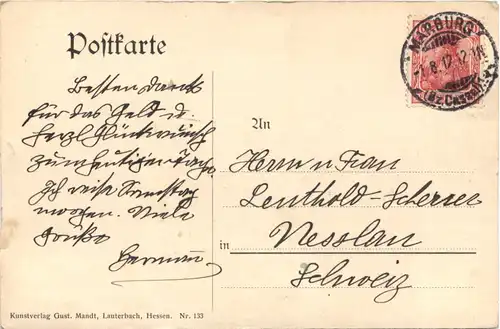 Postkarte
Besten Dank
für das Geld u.
herzl. Glückwunsch
zum heutigen Tage.
Ich reise Samstag
morgen. Viele
Grüße
Hermann
An
Herrn u Frau
Leuthold-Scherrer
in Nesslau
Schweiz
MARBURG
8.12.12
(Bz. Cassel)
Kunstverlag Gust. Mandt, Lauterbach, Hessen. Nr. 133